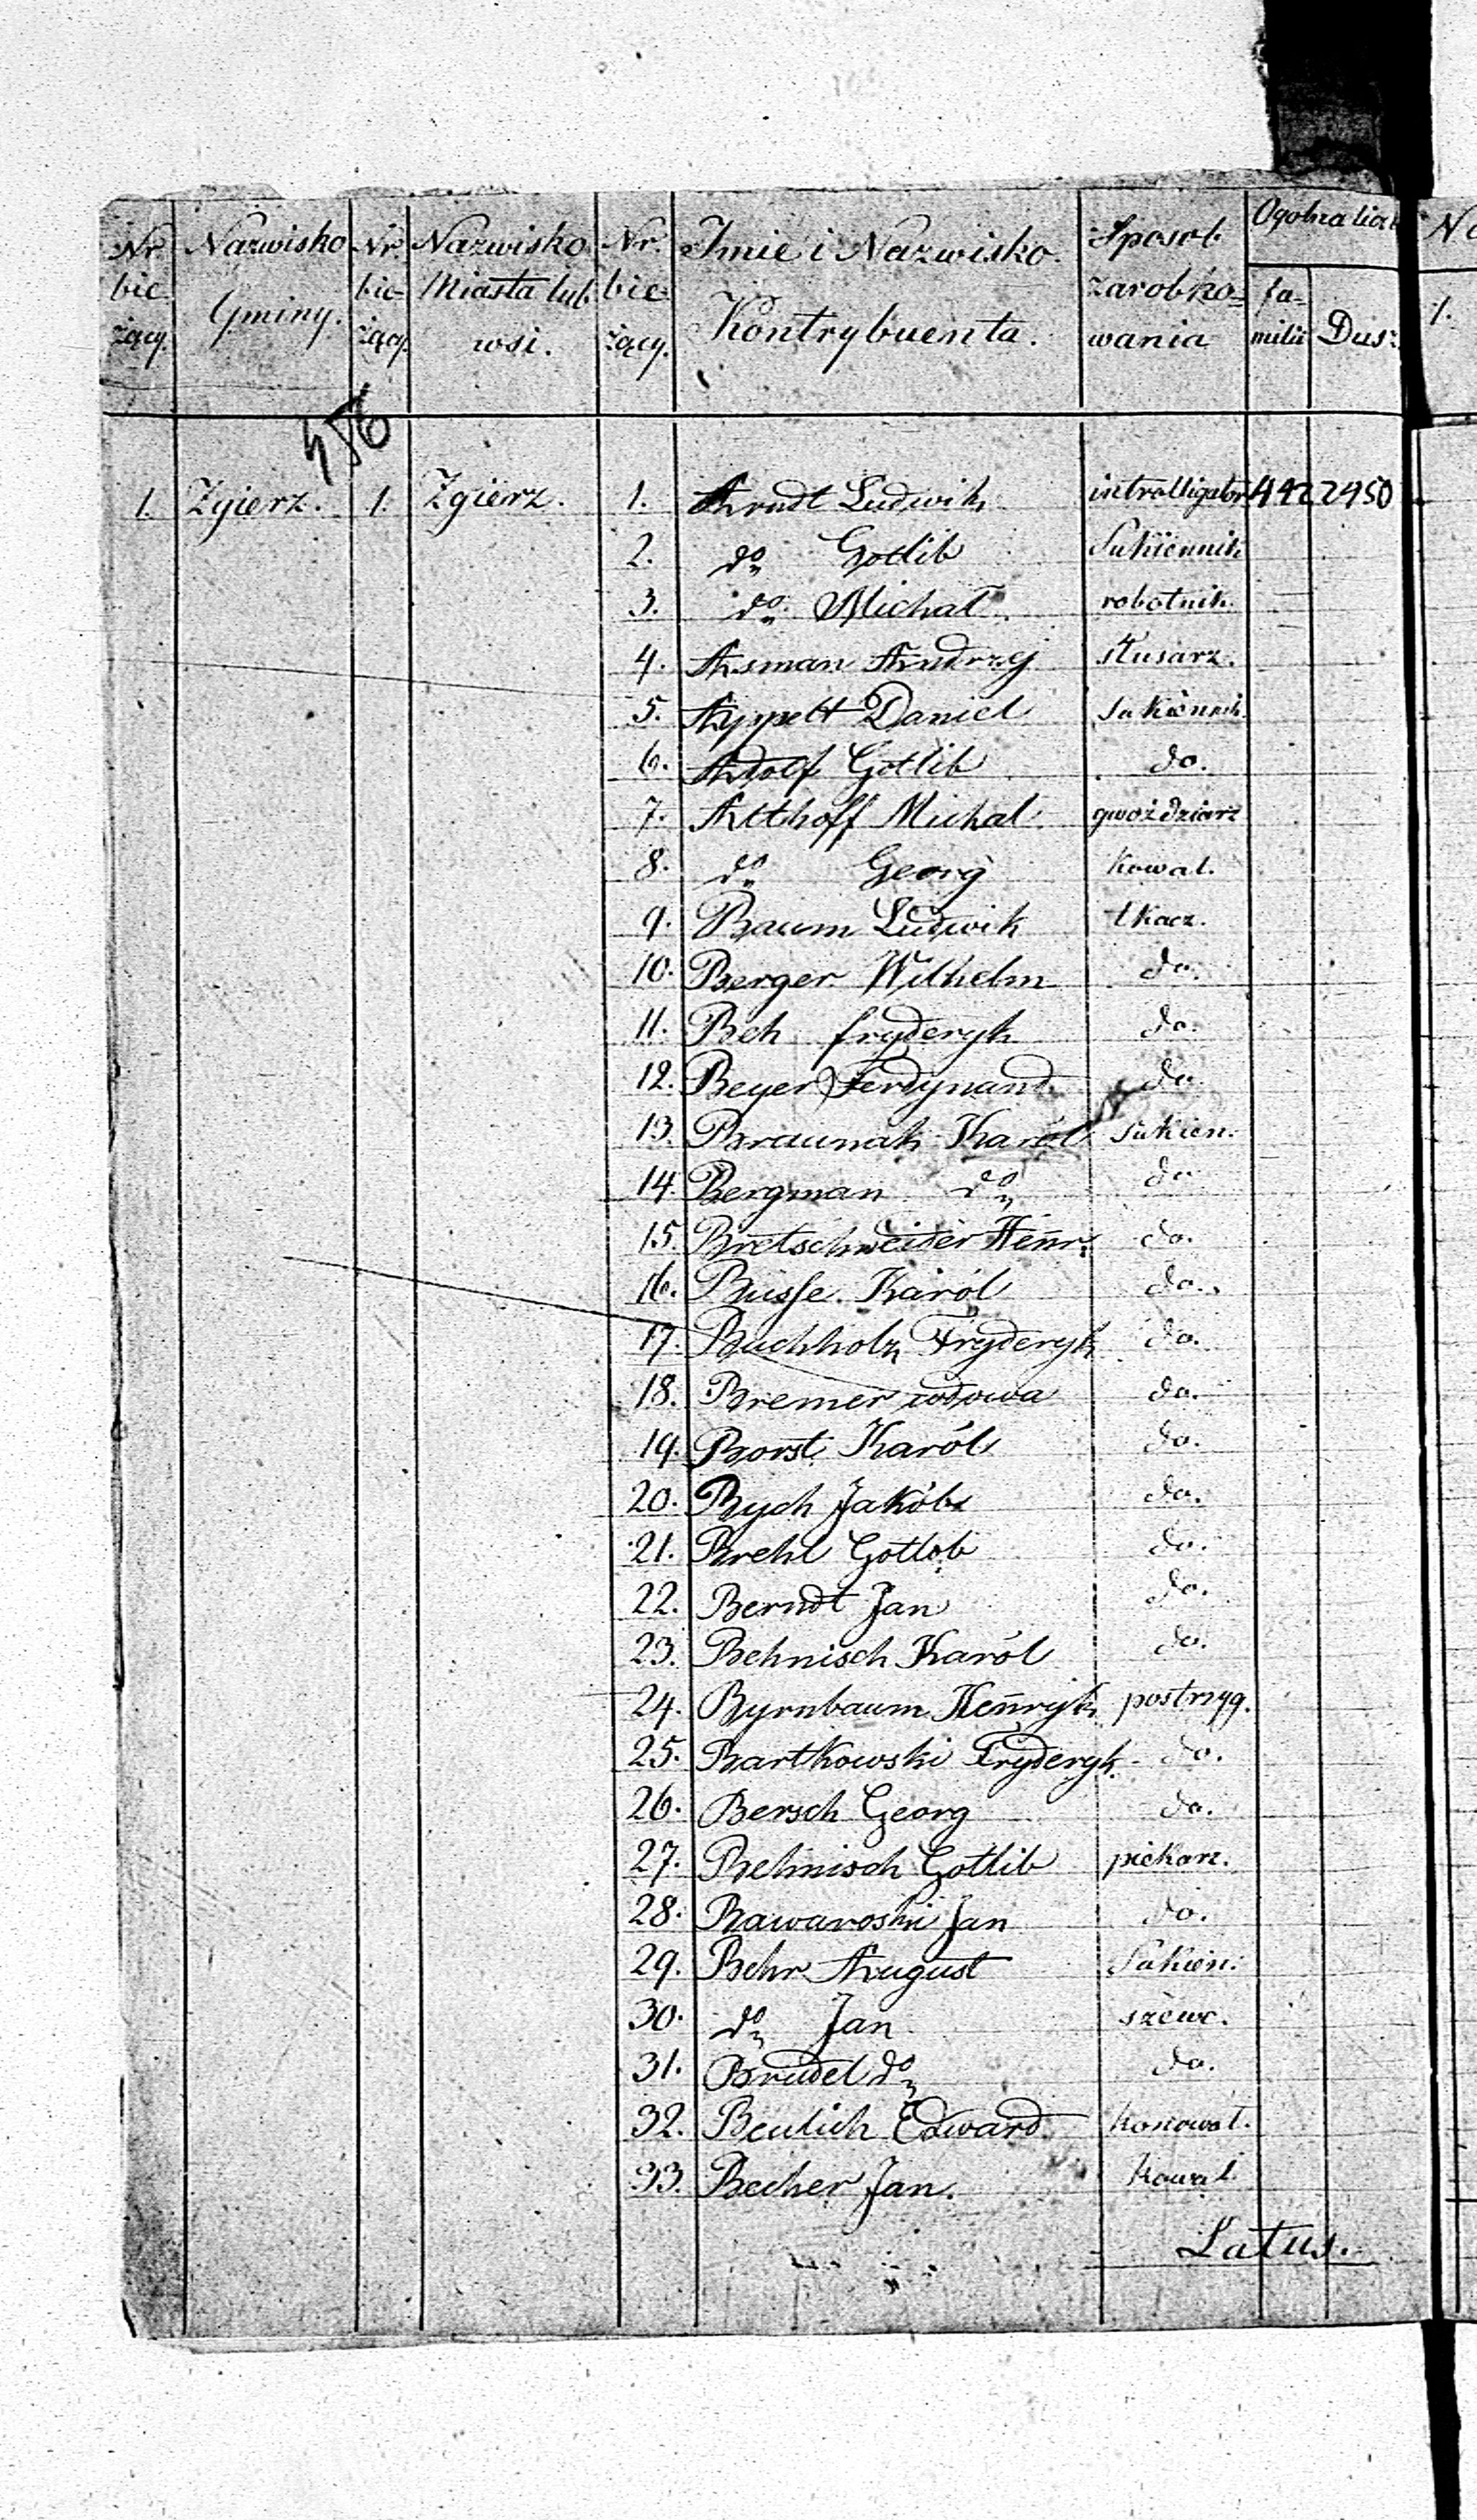 Nr. bie- żący. Nazwisko Gminy. Nr. bie- żący. Nazwisko Miasta lub wsi. Nr. bie- żący. Imie i Nazwisko Kontrybuenta. Sposob zarobko= wania Ogolna fa- milii Dusz
456
1. Zgierz. 1. Zgierz. 1. Arndt Ludwik introlligator 442 2450
2. do Gotlib Sukiennik
3. do Michał robotnik
4. Asman Andrzej słusarz.
5. Appelt Daniel Sukiennik
6. Adolf Gotlib do.
7. Althoff Michal gwoździarz
8. do Georg Kowal.
9. Baum Ludwik tkacz.
10. Berger Wilhelm do.
11. Beh fryderyk do.
12. Beyer Ferdynand do.
13. Braunak Karól Sukien.
14. Bergman do do
15. Bretschneider Henr: do.
16. Busse Karól do.
17. Buchholz Fryderyk do.
18. Bremer wdowa do.
19. Borst Karól do.
20. Bych Jakób do.
21. Brehl Gotlob do.
22. Berndt Jan do.
23. Behnisch Karól do.
24. Byrnbaum Henryk postrzyg.
25. Bartkowski Fryderyk do.
26. Bersch Georg do.
27. Behnisch Gotlib piekarz.
28. Bawaroski Jan do.
29. Behr August Sukien.
30. do Jan szewc.
31. Brudel do do.
32. Beulich Edward konował.
33. Becher Jan. Kowal
Latus.